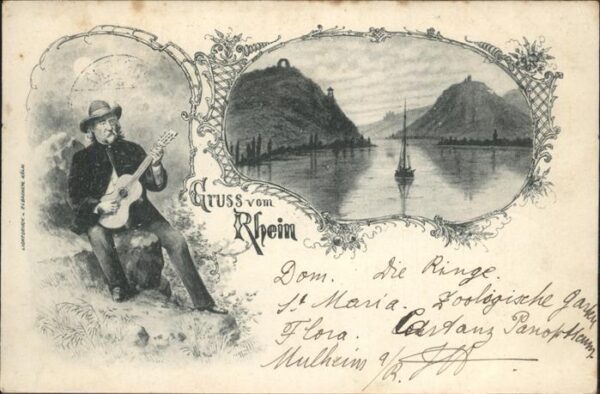 Gruss vom
Rhein
Dom. Die Ringe.
St Maria. Zoologische Garten
Flora. Castanz Panoptikum
Mulheim a/R.